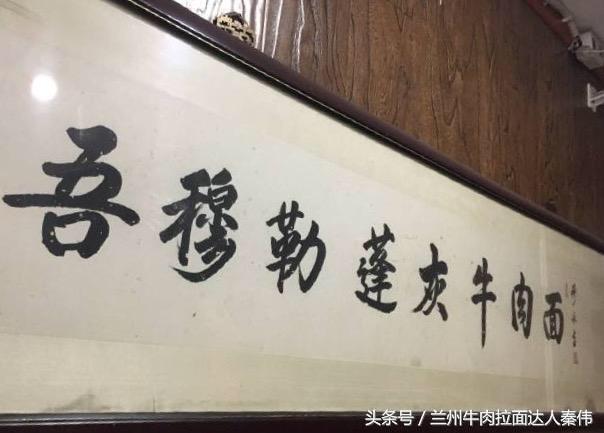 吾穆勒蓬灰牛肉面
头条号／兰州牛肉拉面达人秦伟